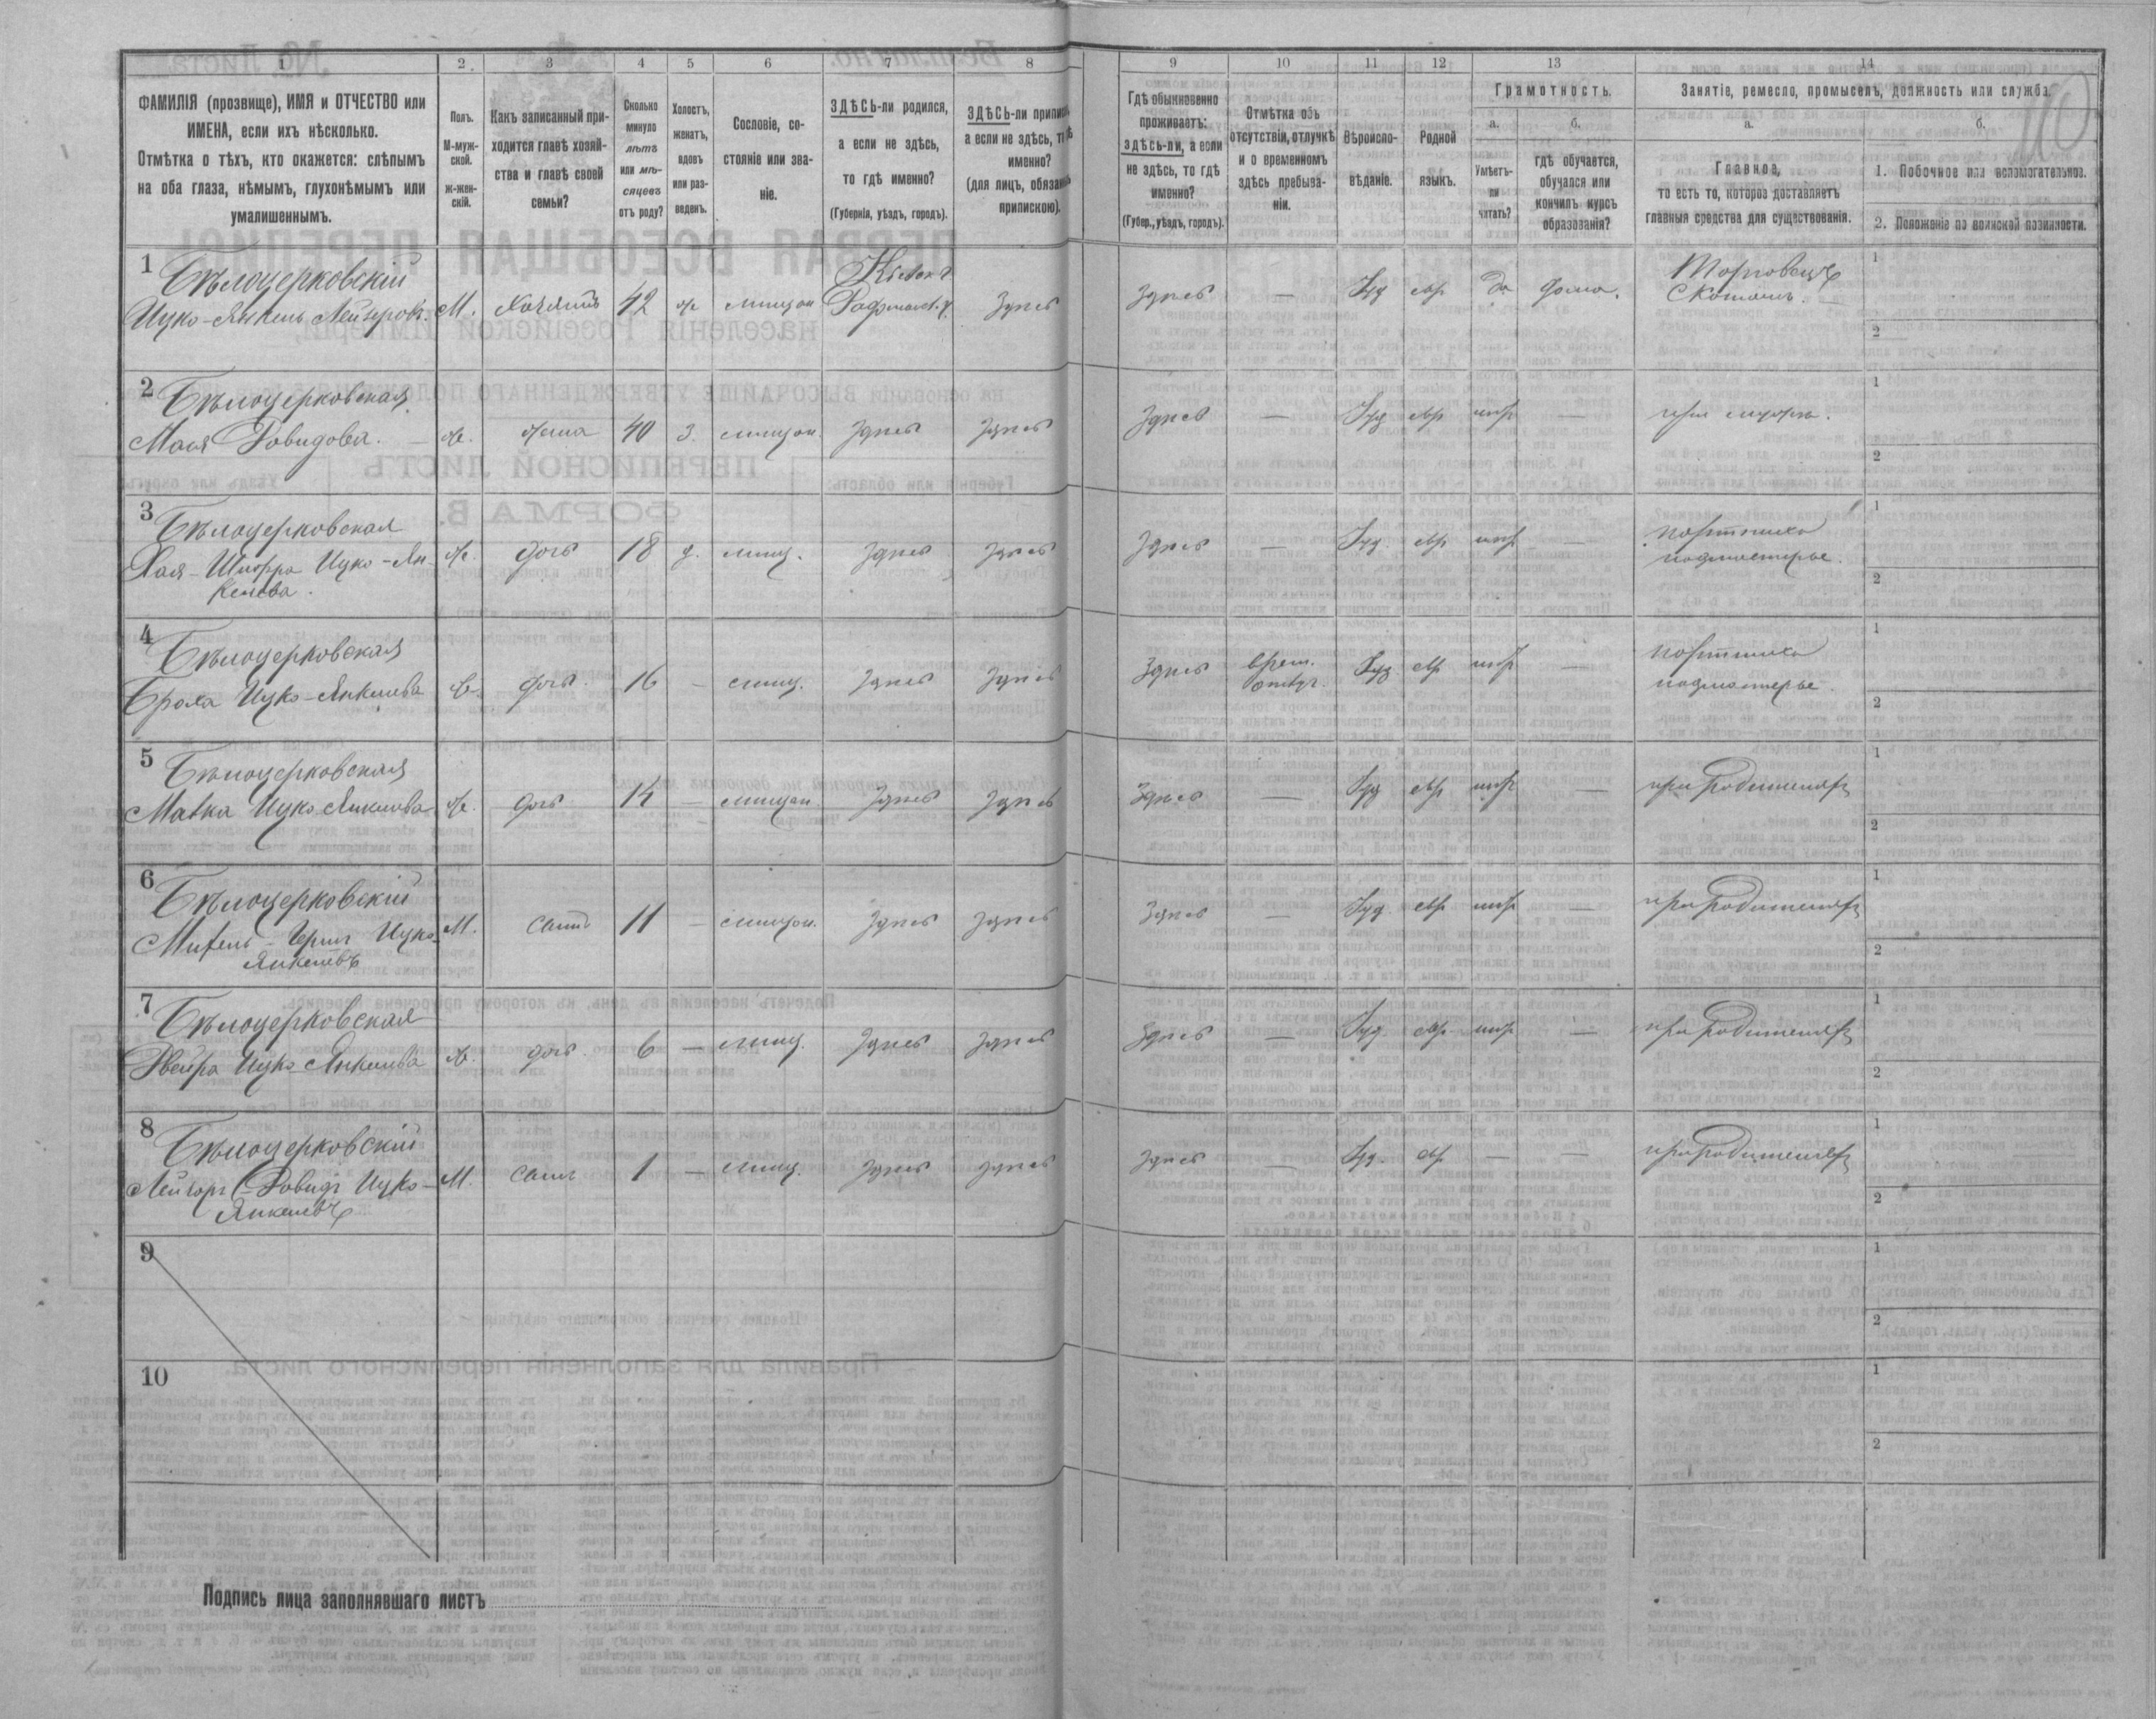 1 2 3 4 5 6 7 8 9 10 11 12 13 14
ФАМИЛІЯ (прозвище), ИМЯ и ОТЧЕСТВО или
ИМЕНА, если ихъ нѣсколько.
Отмѣтка о тѣхъ, кто окажется: слѣпымъ
на оба глаза, нѣмымъ, глухонѣмымъ или
умалишеннымъ.
Полъ.
М-муж-
ской.
ж-жен-
скій.
Какъ записанный при-
ходится главѣ хозяй-
ства и главѣ своей
семьи?
Сколько
минуло
лѣтъ
или мѣ-
сяцевъ
отъ роду?
Холостъ,
женатъ,
вдовъ
или раз-
веденъ.
Сословіе, со-
стояніе или зва-
ніе.
ЗДѢСЬ-ли родился,
а если не здѣсь,
то гдѣ именно?
(Губернія, уѣздъ, городъ).
ЗДѢСЬ-ли
а если не здѣсь,
именно?
(для лицъ,
припискою).
Гдѣ обыкновенно
проживаетъ:
здѣсь-ли, а если
не здѣсь, то гдѣ
именно?
(Губер., уѣздъ, городъ).
Отмѣтка объ
отсутствіи, отлучкѣ
и о временномъ
здѣсь пребыва-
ніи.
Вѣроиспо-
вѣданіе.
Родной
языкъ.
Грамотность.
а.
Умѣетъ-
ли
читать?
б.
гдѣ обучается,
обучался или
кончилъ курсъ
образованія?
Занятіе, ремесло, промыселъ, должность или служба.
а.
Главное,
то есть то, которое доставляетъ
главныя средства для существованія.
б.
1. Побочное или вспомогательное.
2. Положеніе по воинской повинности.
1 Бѣлоцерковскій
Ицко-Янкель Лейзеровъ. М. Хозяинъ 42 ж мѣщан Здѣсь Здѣсь — Іуд евр да дома. Торговецъ
1
2
2 Бѣлоцерковская
Мася Довидова. — ж. жена 40 з. мѣщан. Здѣсь Здѣсь Здѣсь — Іуд евр — при мужѣ.
1
2
3 Бѣлоцерковская
Хая-Шифра Ицко-Ян- ж. дочь 18 д. мѣщ. Здѣсь Здѣсь Здѣсь — Іуд. евр — портниха
келева. подмастерье.
1
2
4 Бѣлоцерковская
Броха Ицко-Янкелева ж. дочь 16 — мѣщ. Здѣсь Здѣсь Здѣсь Іуд. евр — портниха
подмастерье.
1
2
5 Бѣлоцерковская
Малка Ицко-Янкелева ж. дочь 14 — мѣщан. Здѣсь Здѣсь Здѣсь — Іуд евр — при родителяхъ
1
2
6 Бѣлоцерковскій
Ицко- М. сынъ 11 — мѣщан. Здѣсь Здѣсь Здѣсь — Іуд. евр — при родителяхъ
Янкелевъ
1
2
7 Бѣлоцерковская
Двейра Ицко-Янкелева ж. дочь 6 — мѣщ. Здѣсь Здѣсь Здѣсь — Іуд. евр — при родителяхъ
1
2
8 Бѣлоцерковскій
Довидъ Ицко- М. сынъ 1 — мѣщ. Здѣсь Здѣсь Здѣсь — Іуд. евр — — при родителяхъ
Янкелевъ
1
2
9
1
2
10
1
2
Подпись лица заполнявшаго листъ